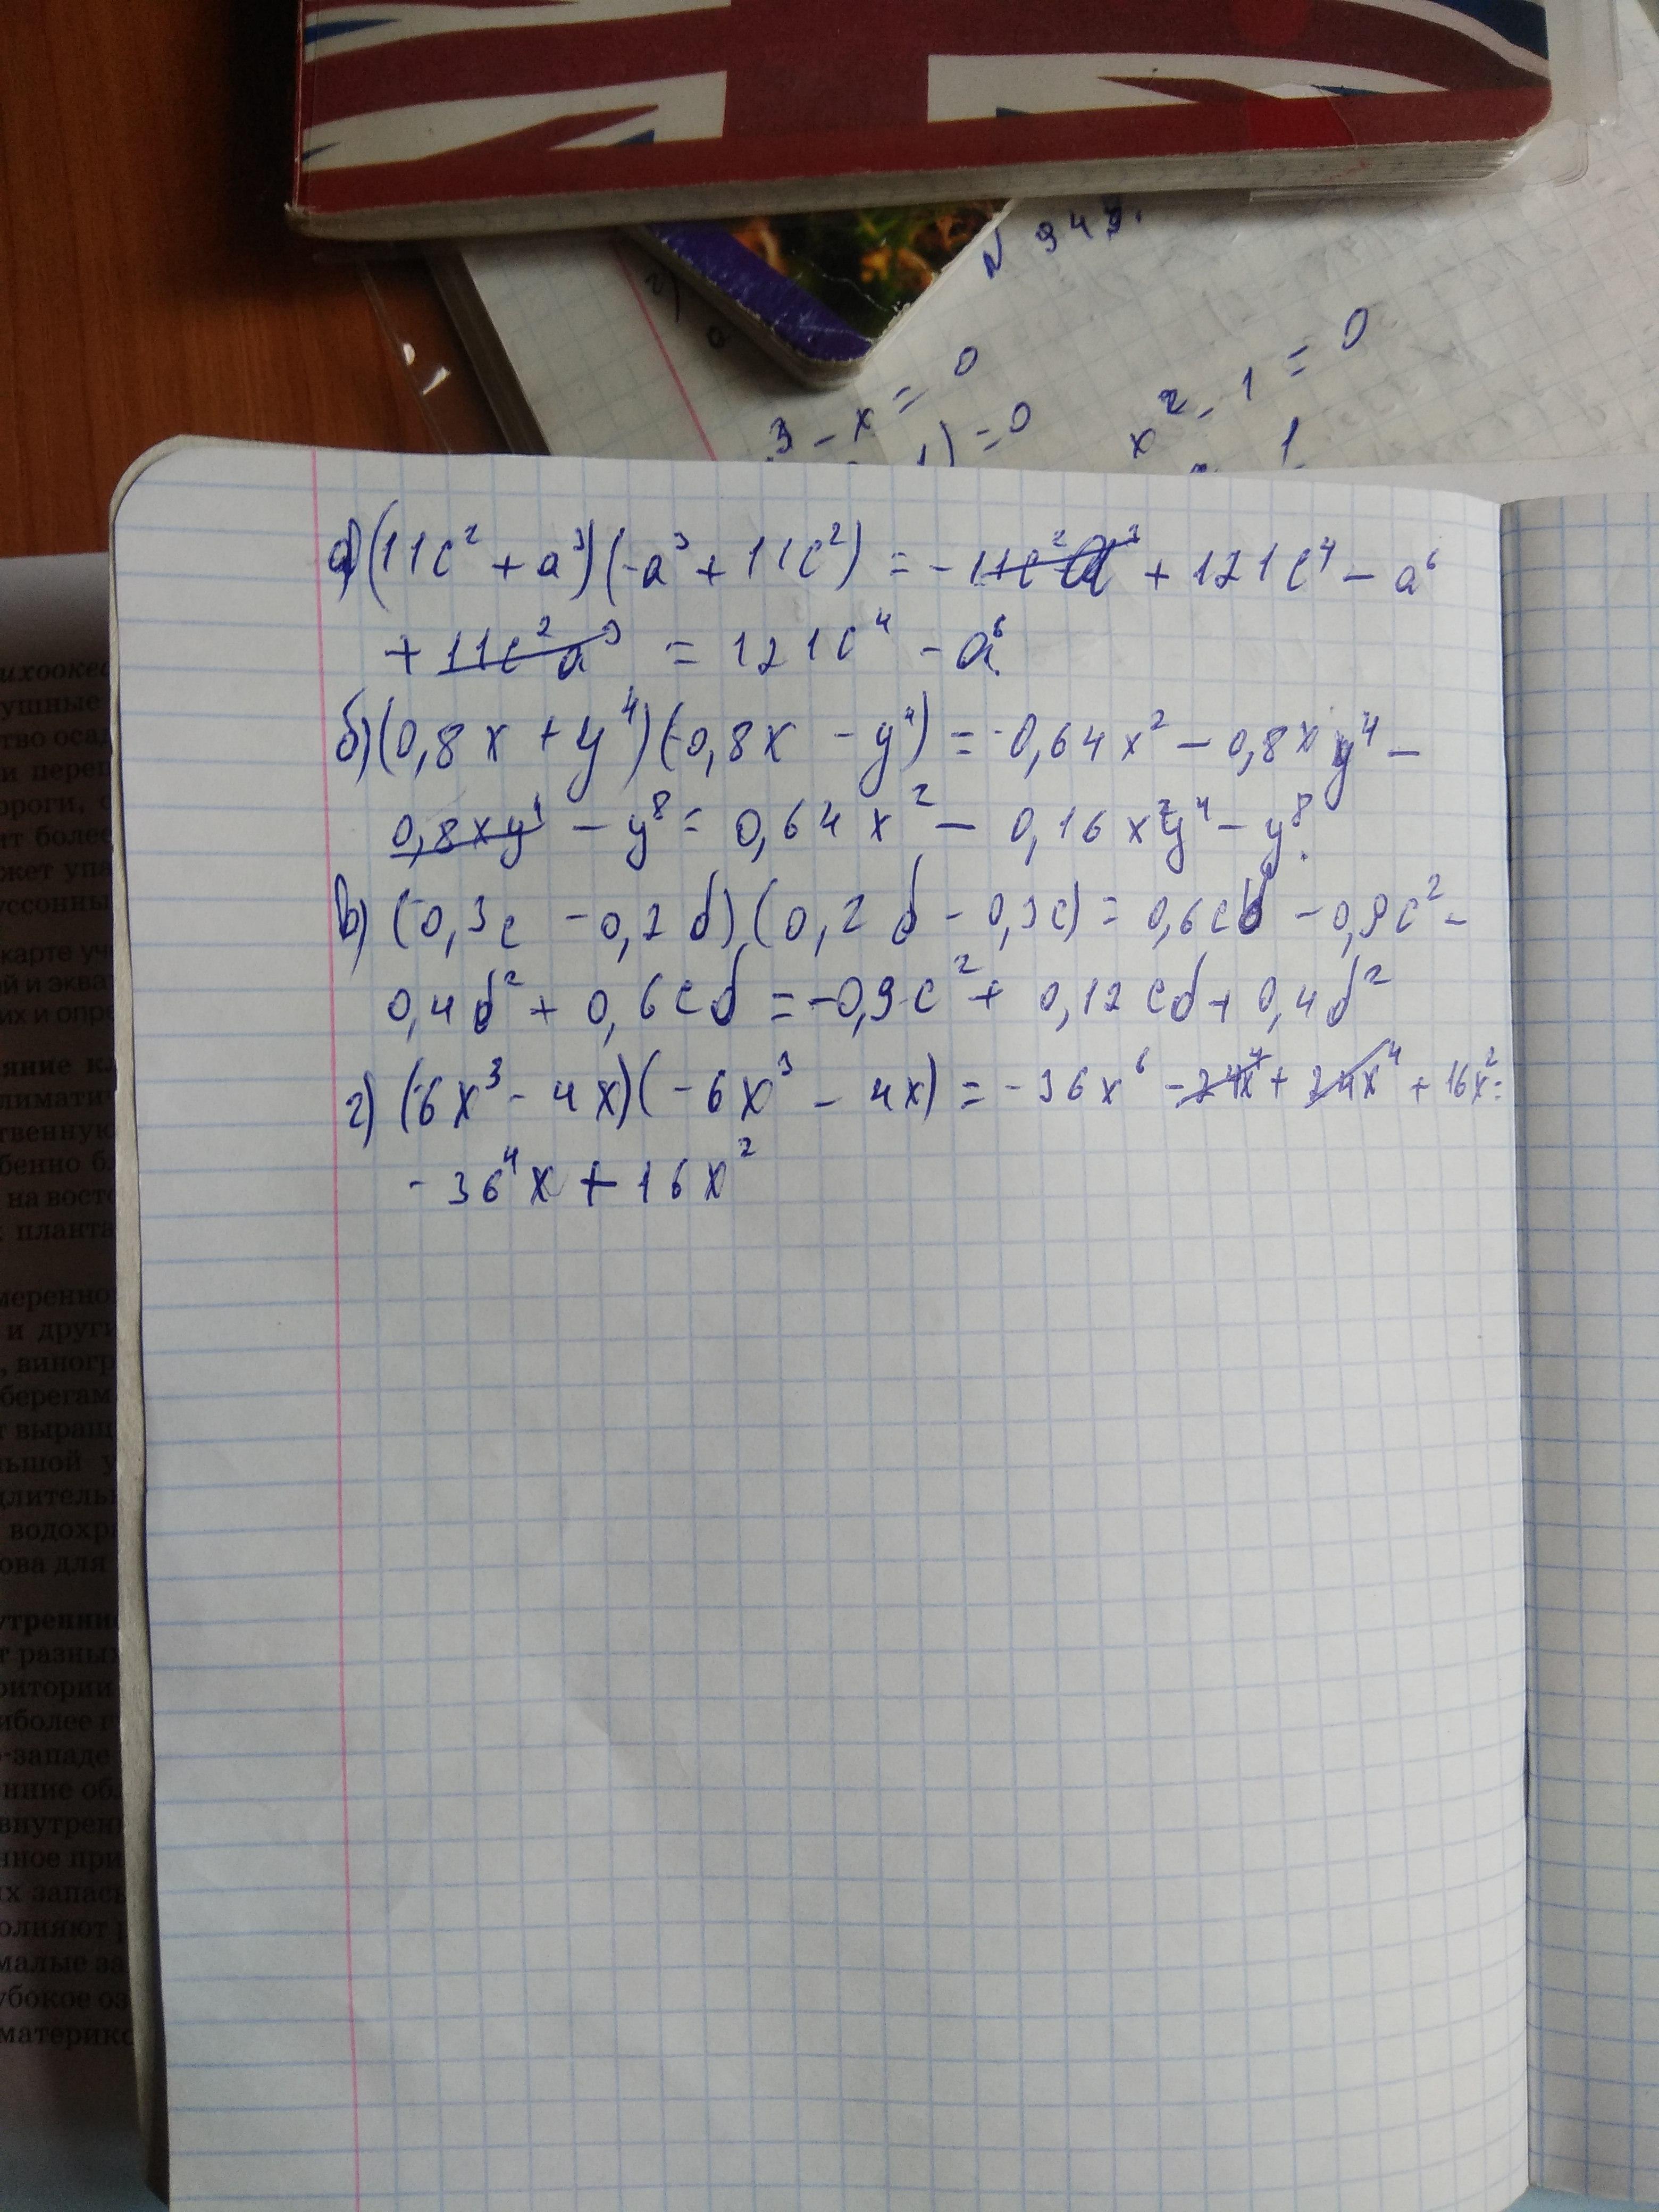 N 947.
3 - x = 0
x² - 1 = 0
1) = 0
1
а) (11c² + a³)(-a³ + 11c²) = - 11c²a³ + 121c⁴ - a⁶
+ 11c²a³ = 121c⁴ - a⁶.
б) (0,8x + y⁴)(-0,8x - y⁴) = -0,64x² - 0,8xy⁴ -
0,8xy⁴ - y⁸ = 0,64x² - 0,16x²y⁴ - y⁸.
в) (-0,3c - 0,2б)(0,2б - 0,3c) = 0,6cб - 0,9c² -
0,4б² + 0,6cб = -0,9c² + 0,12cб + 0,4б²
г) (6x³ - 4x)(-6x³ - 4x) = -36x⁶ - 24x⁴ + 24x⁴ + 16x² =
- 36⁴x + 16x²
ихоокес
ушные
тво осад
и переп
ороги, с
ит более
жет упа
уссонны
карте уч
й и эква
их и опре
яние кл
лиматич
твенную
бенно бл
на восто
планта
меренно
и други
, виногр
берегам
выращ
льшой у
длительн
водохра
ова для
утренние
т разных
ритории
иболее г
-западе
нние об
внутрен
нное при
х запась
олняют р
малые за
убокое оз
материко